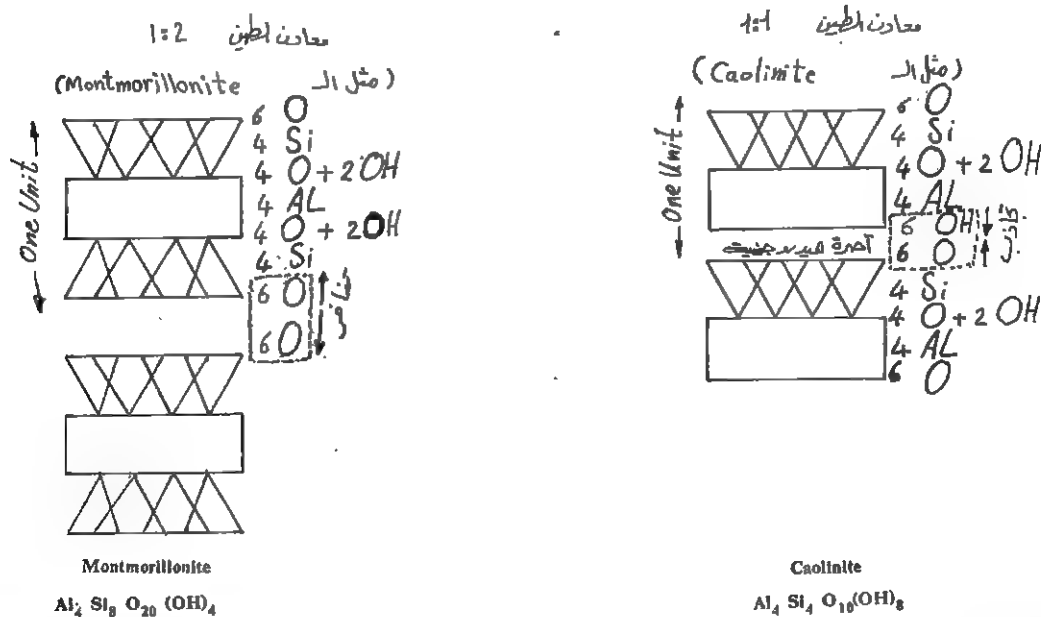 معادن الطين 1:2
(مثل الـ Montmorillonite
One Unit
6 O
4 Si
4 O + 2 OH
4 AL
4 O + 2 OH
4 Si
6 O
6 O
Montmorillonite
Al₄ Si₈ O₂₀ (OH)₄
معادن الطين 1:1
(مثل الـ Caolinite)
One Unit
6 O
4 Si
4 O + 2 OH
4 AL
6 OH
6 O
آصرة هيدروجينية
4 Si
4 O + 2 OH
4 AL
6 O
Caolinite
Al₄ Si₄ O₁₀(OH)₈